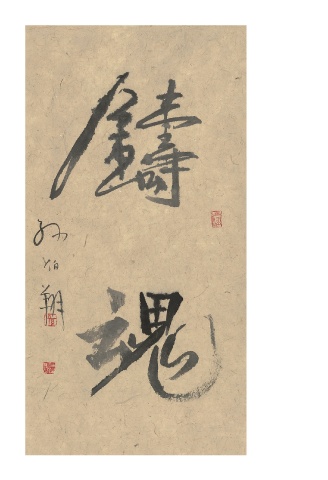 鑄
魂
孙伯翔